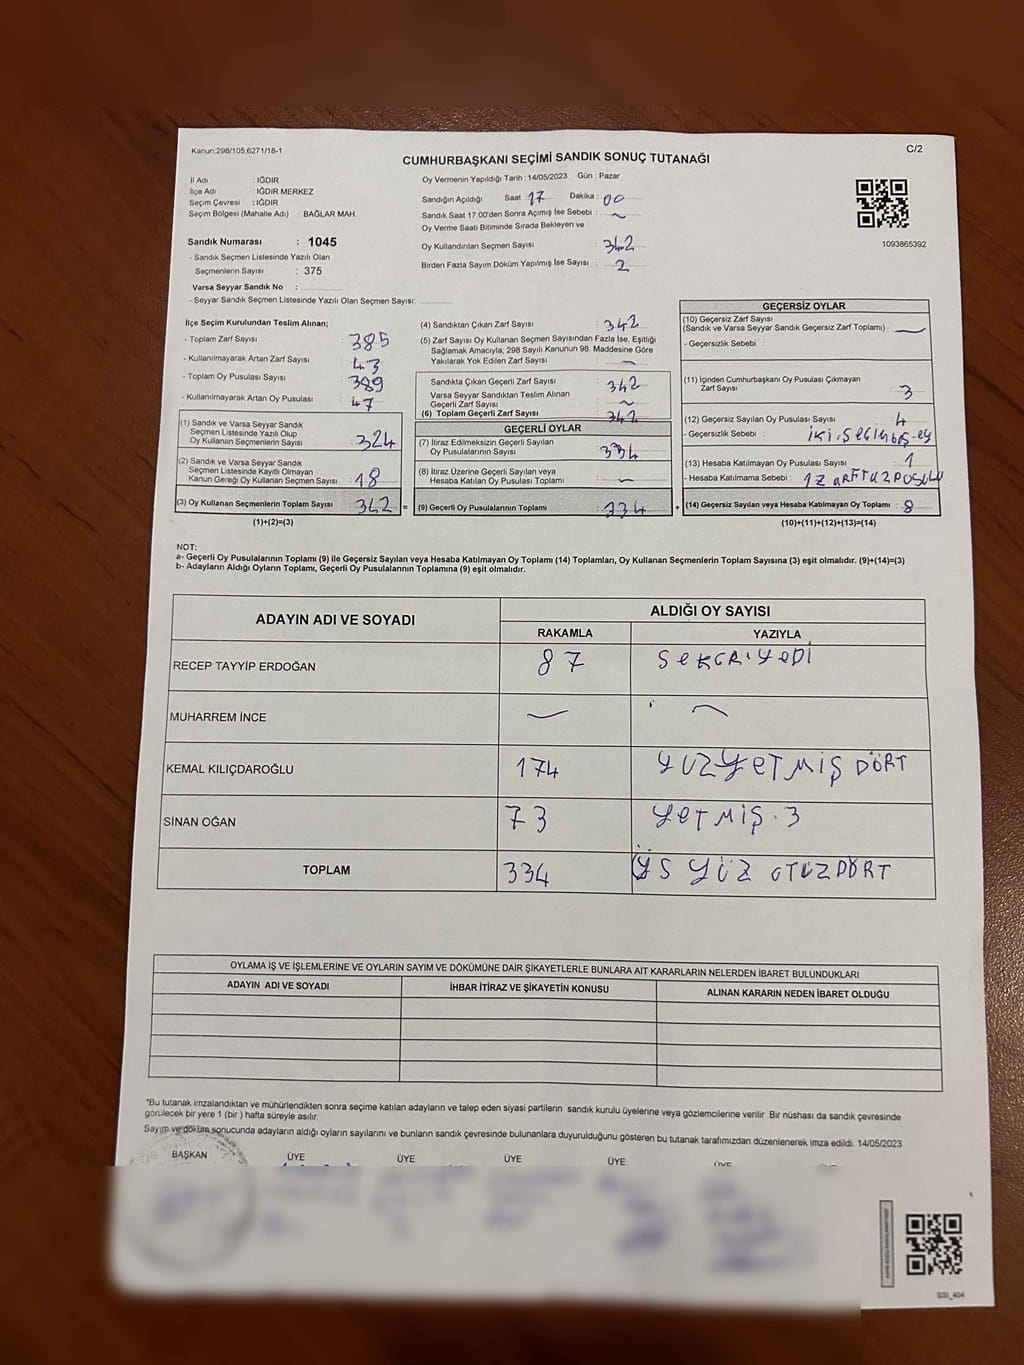 Kanun:298/105,6271/18-1
C/2
CUMHURBAŞKANI SEÇİMİ SANDIK SONUÇ TUTANAĞI
İl Adı : IĞDIR
İlçe Adı : IĞDIR MERKEZ
Seçim Çevresi : IĞDIR
Seçim Bölgesi (Mahalle Adı) : BAĞLAR MAH.
Sandık Numarası : 1045
- Sandık Seçmen Listesinde Yazılı Olan
Seçmenlerin Sayısı : 375
Varsa Seyyar Sandık No :
- Seyyar Sandık Seçmen Listesinde Yazılı Olan Seçmen Sayısı:
Oy Vermenin Yapıldığı Tarih : 14/05/2023 Gün : Pazar
Sandığın Açıldığı Saat 17 Dakika : 00
Sandık Saat 17:00'den Sonra Açımış İse Sebebi : ~
Oy Verme Saati Bitiminde Sırada Bekleyen ve
Oy Kullandırılan Seçmen Sayısı : 342
Birden Fazla Sayım Döküm Yapılmış İse Sayısı : 2
1093865392
İlçe Seçim Kurulundan Teslim Alınan;
- Toplam Zarf Sayısı : 385
- Kullanılmayarak Artan Zarf Sayısı : 43
- Toplam Oy Pusulası Sayısı : 389
- Kullanılmayarak Artan Oy Pusulası : 47
(1) Sandık ve Varsa Seyyar Sandık
Seçmen Listesinde Yazılı Olup
Oy Kullanan Seçmenlerin Sayısı : 324
(2) Sandık ve Varsa Seyyar Sandık
Seçmen Listesinde Kayıtlı Olmayan
Kanun Gereği Oy Kullanan Seçmen Sayısı : 18
(3) Oy Kullanan Seçmenlerin Toplam Sayısı : 342 =
(1)+(2)=(3)
(4) Sandıktan Çıkan Zarf Sayısı : 342
(5) Zarf Sayısı Oy Kullanan Seçmen Sayısından Fazla İse, Eşitliği
Sağlamak Amacıyla, 298 Sayılı Kanunun 98. Maddesine Göre
Yakılarak Yok Edilen Zarf Sayısı : ~
Sandıkta Çıkan Geçerli Zarf Sayısı : 342
Varsa Seyyar Sandıktan Teslim Alınan
Geçerli Zarf Sayısı : ~
(6) Toplam Geçerli Zarf Sayısı : 342
GEÇERLİ OYLAR
(7) İtiraz Edilmeksizin Geçerli Sayılan
Oy Pusulalarının Sayısı : 334
(8) İtiraz Üzerine Geçerli Sayılan veya
Hesaba Katılan Oy Pusulası Toplamı : ~
(9) Geçerli Oy Pusulalarının Toplamı : 334 +
GEÇERSİZ OYLAR
(10) Geçersiz Zarf Sayısı
(Sandık ve Varsa Seyyar Sandık Geçersiz Zarf Toplamı) : ~
- Geçersizlik Sebebi :
(11) İçinden Cumhurbaşkanı Oy Pusulası Çıkmayan
Zarf Sayısı : 3
(12) Geçersiz Sayılan Oy Pusulası Sayısı : 4
- Geçersizlik Sebebi : iki.seçim
(13) Hesaba Katılmayan Oy Pusulası Sayısı : 1
- Hesaba Katılmama Sebebi :
(14) Geçersiz Sayılan veya Hesaba Katılmayan Oy Toplamı : 8
(10)+(11)+(12)+(13)=(14)
NOT:
a- Geçerli Oy Pusulalarının Toplamı (9) ile Geçersiz Sayılan veya Hesaba Katılmayan Oy Toplamı (14) Toplamları, Oy Kullanan Seçmenlerin Toplam Sayısına (3) eşit olmalıdır. (9)+(14)=(3)
b- Adayların Aldığı Oyların Toplamı, Geçerli Oy Pusulalarının Toplamına (9) eşit olmalıdır.
ADAYIN ADI VE SOYADI ALDIĞI OY SAYISI
RAKAMLA YAZIYLA
RECEP TAYYİP ERDOĞAN 87 SeKCRiYeDi
MUHARREM İNCE ~ ~
KEMAL KILIÇDAROĞLU 174 YUZYeTMiŞ DÖRT
SİNAN OĞAN 73 YeTMiŞ.3
TOPLAM 334 ÜS YÜZ OTUZDÖRT
OYLAMA İŞ VE İŞLEMLERİNE VE OYLARIN SAYIM VE DÖKÜMÜNE DAİR ŞİKAYETLERLE BUNLARA AİT KARARLARIN NELERDEN İBARET BULUNDUKLARI
ADAYIN ADI VE SOYADI İHBAR İTİRAZ VE ŞİKAYETİN KONUSU ALINAN KARARIN NEDEN İBARET OLDUĞU
"Bu tutanak imzalandıktan ve mühürlendikten sonra seçime katılan adayların ve talep eden siyasi partilerin sandık kurulu üyelerine veya gözlemcilerine verilir .Bir nüshası da sandık çevresinde
görülecek bir yere 1 (bir ) hafta süreyle asılır.
Sayım ve döküm sonucunda adayların aldığı oyların sayılarını ve bunların sandık çevresinde bulunanlara duyurulduğunu gösteren bu tutanak tarafımızdan düzenlenerek imza edildi. 14/05/2023
BAŞKAN ÜYE ÜYE ÜYE ÜYE ÜYE
SSI_404